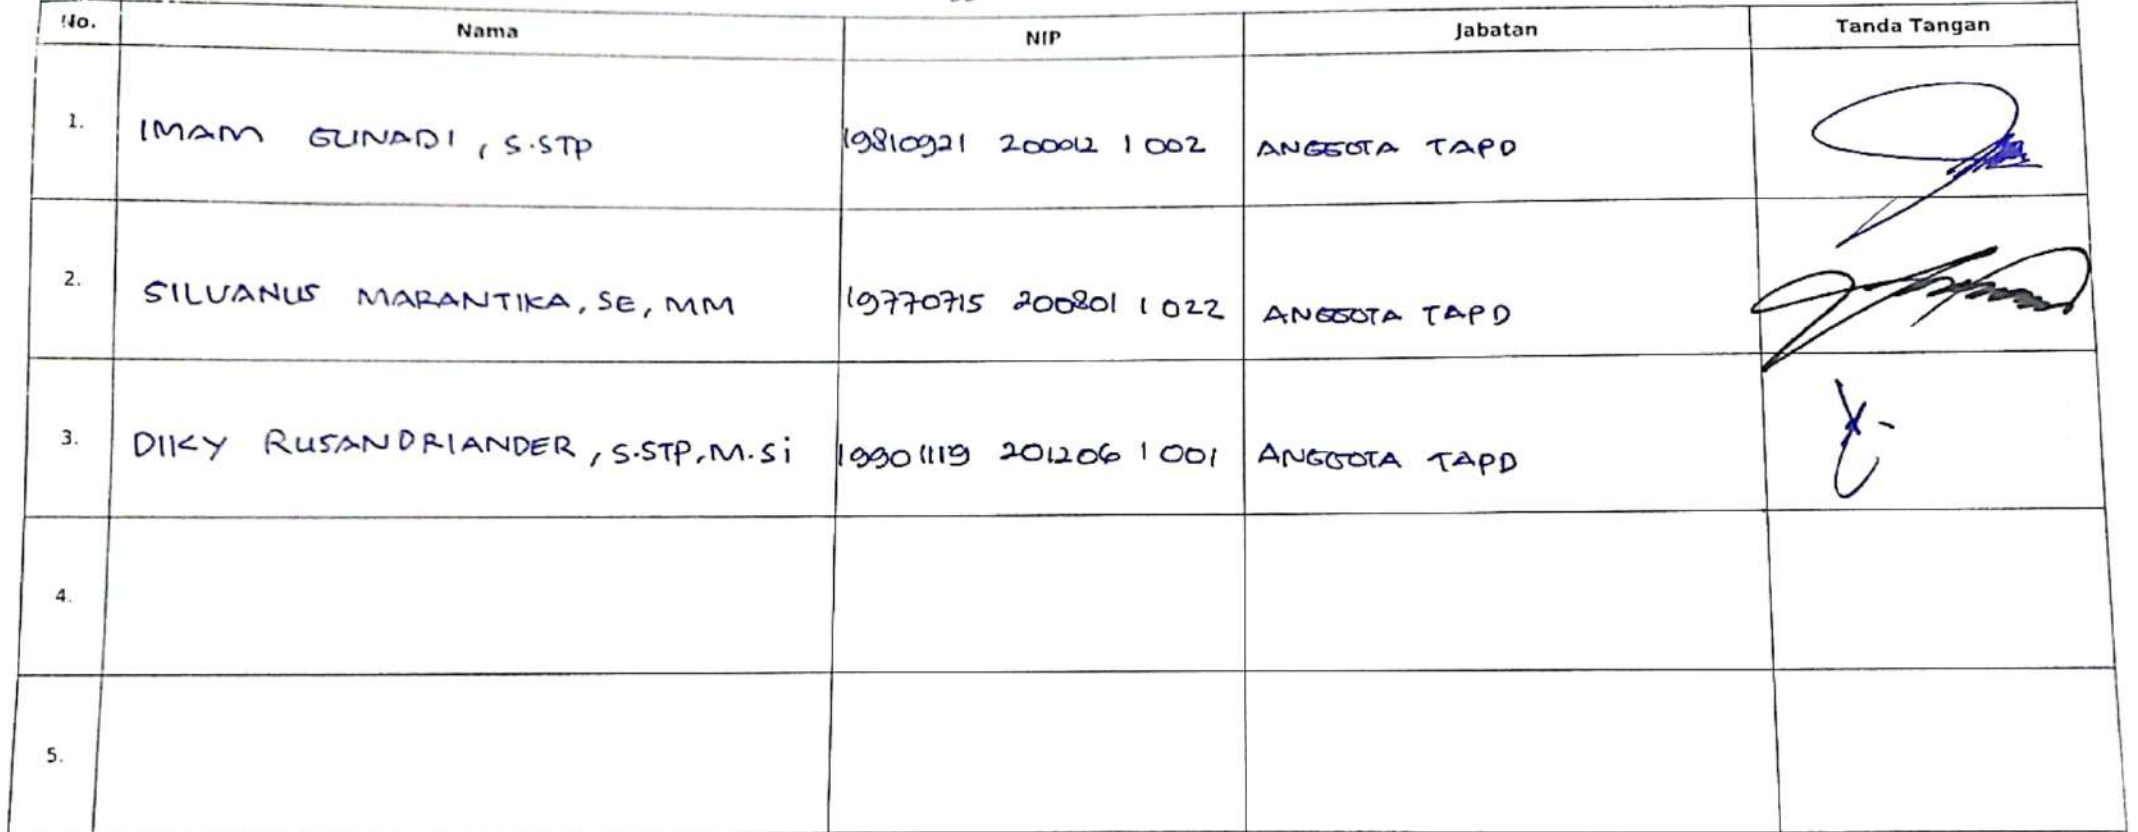 No. Nama NIP Jabatan Tanda Tangan
1. IMAM GUNADI, S.STP 19810921 200012 1 002 ANGGOTA TAPD
2. SILVANUS MARANTIKA, SE, MM 19770715 200801 1 022 ANGGOTA TAPD
3. DIKY RUSANDRIANDER, S.STP, M.Si 19901119 201206 1 001 ANGGOTA TAPD
4.
5.